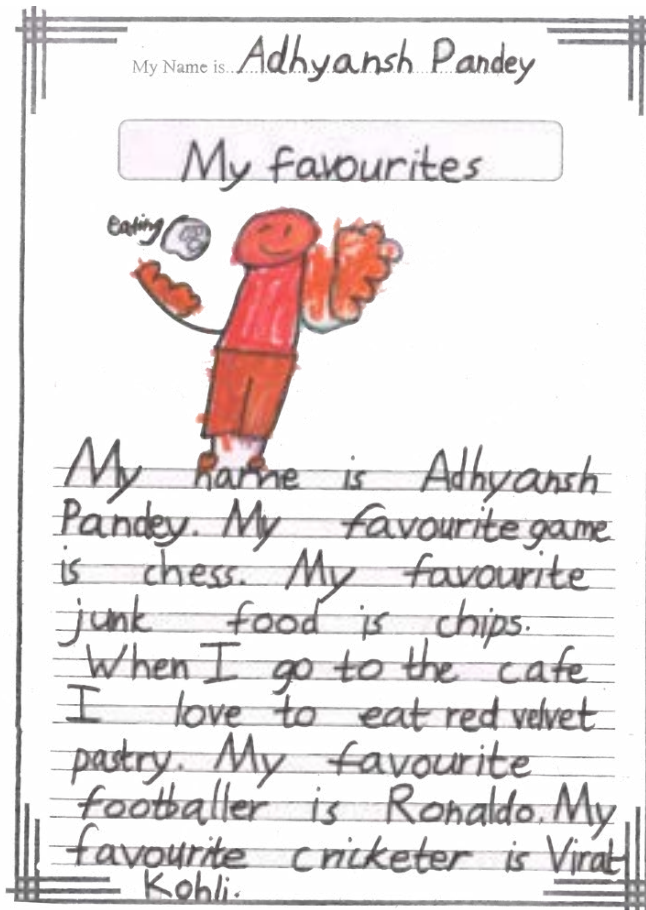 My Name is.. Adhyansh Pandey
My favourites
eating
My name is Adhyansh
Pandey. My favourite game
is chess. My favourite
junk food is chips.
When I go to the cafe
I love to eat red velvet
pastry. My favourite
footballer is Ronaldo. My
favourite cricketer is Virat
Kohli.